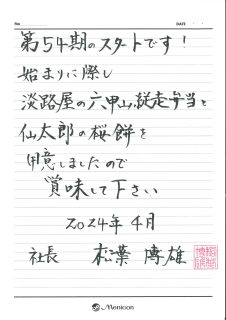 No.
DATE
第54期のスタートです！
始まりに際し
淡路屋の六甲山縦走弁当と
仙太郎の桜餅を
用意しましたので
賞味して下さい
2024年 4月
社長 松葉 博雄
Menicon